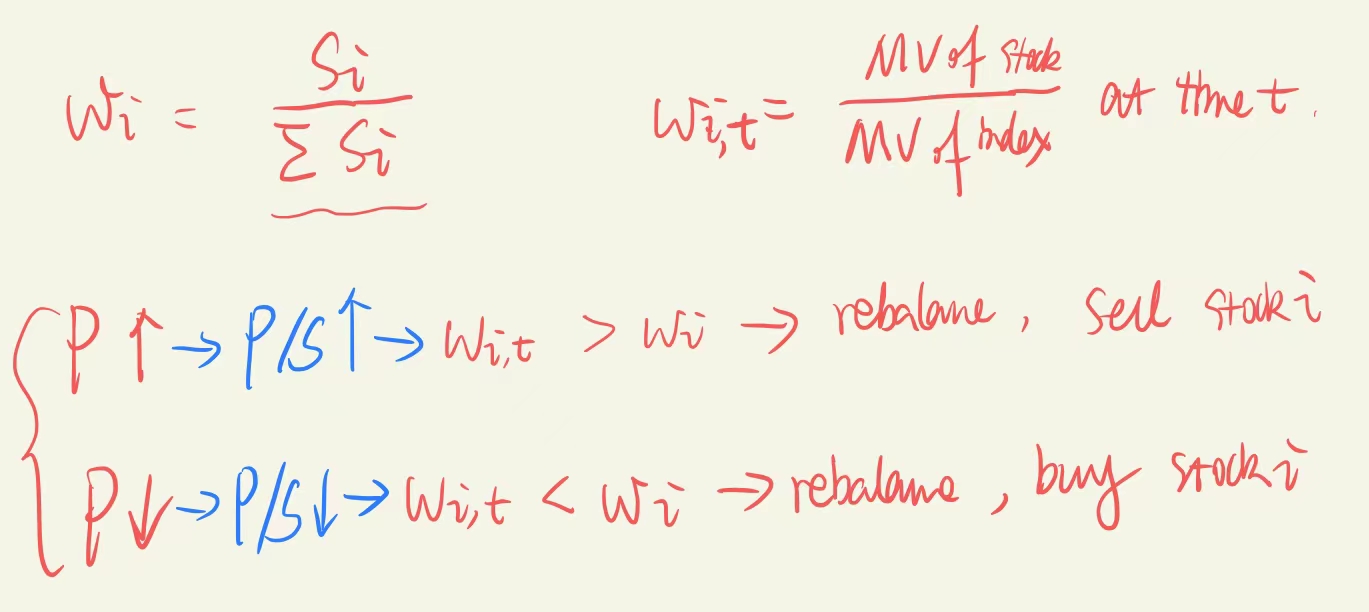 Wi = Si / Σ Si
Wi,t = MV of stock / MV of index at time t.
P ↑ → P/S ↑ → Wi,t > Wi → rebalance, sell stock i
P ↓ → P/S ↓ → Wi,t < Wi → rebalance, buy stock i